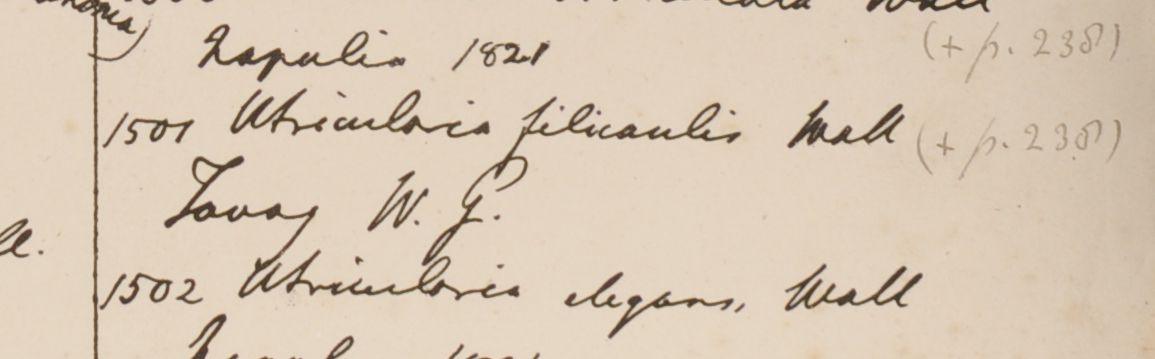 Wall
Napulia 1821 (+ p. 238)
1501 Utricularia filicaulis Wall (+ p. 238)
Tavoy W. G.
1502 Utricularia elegans, Wall